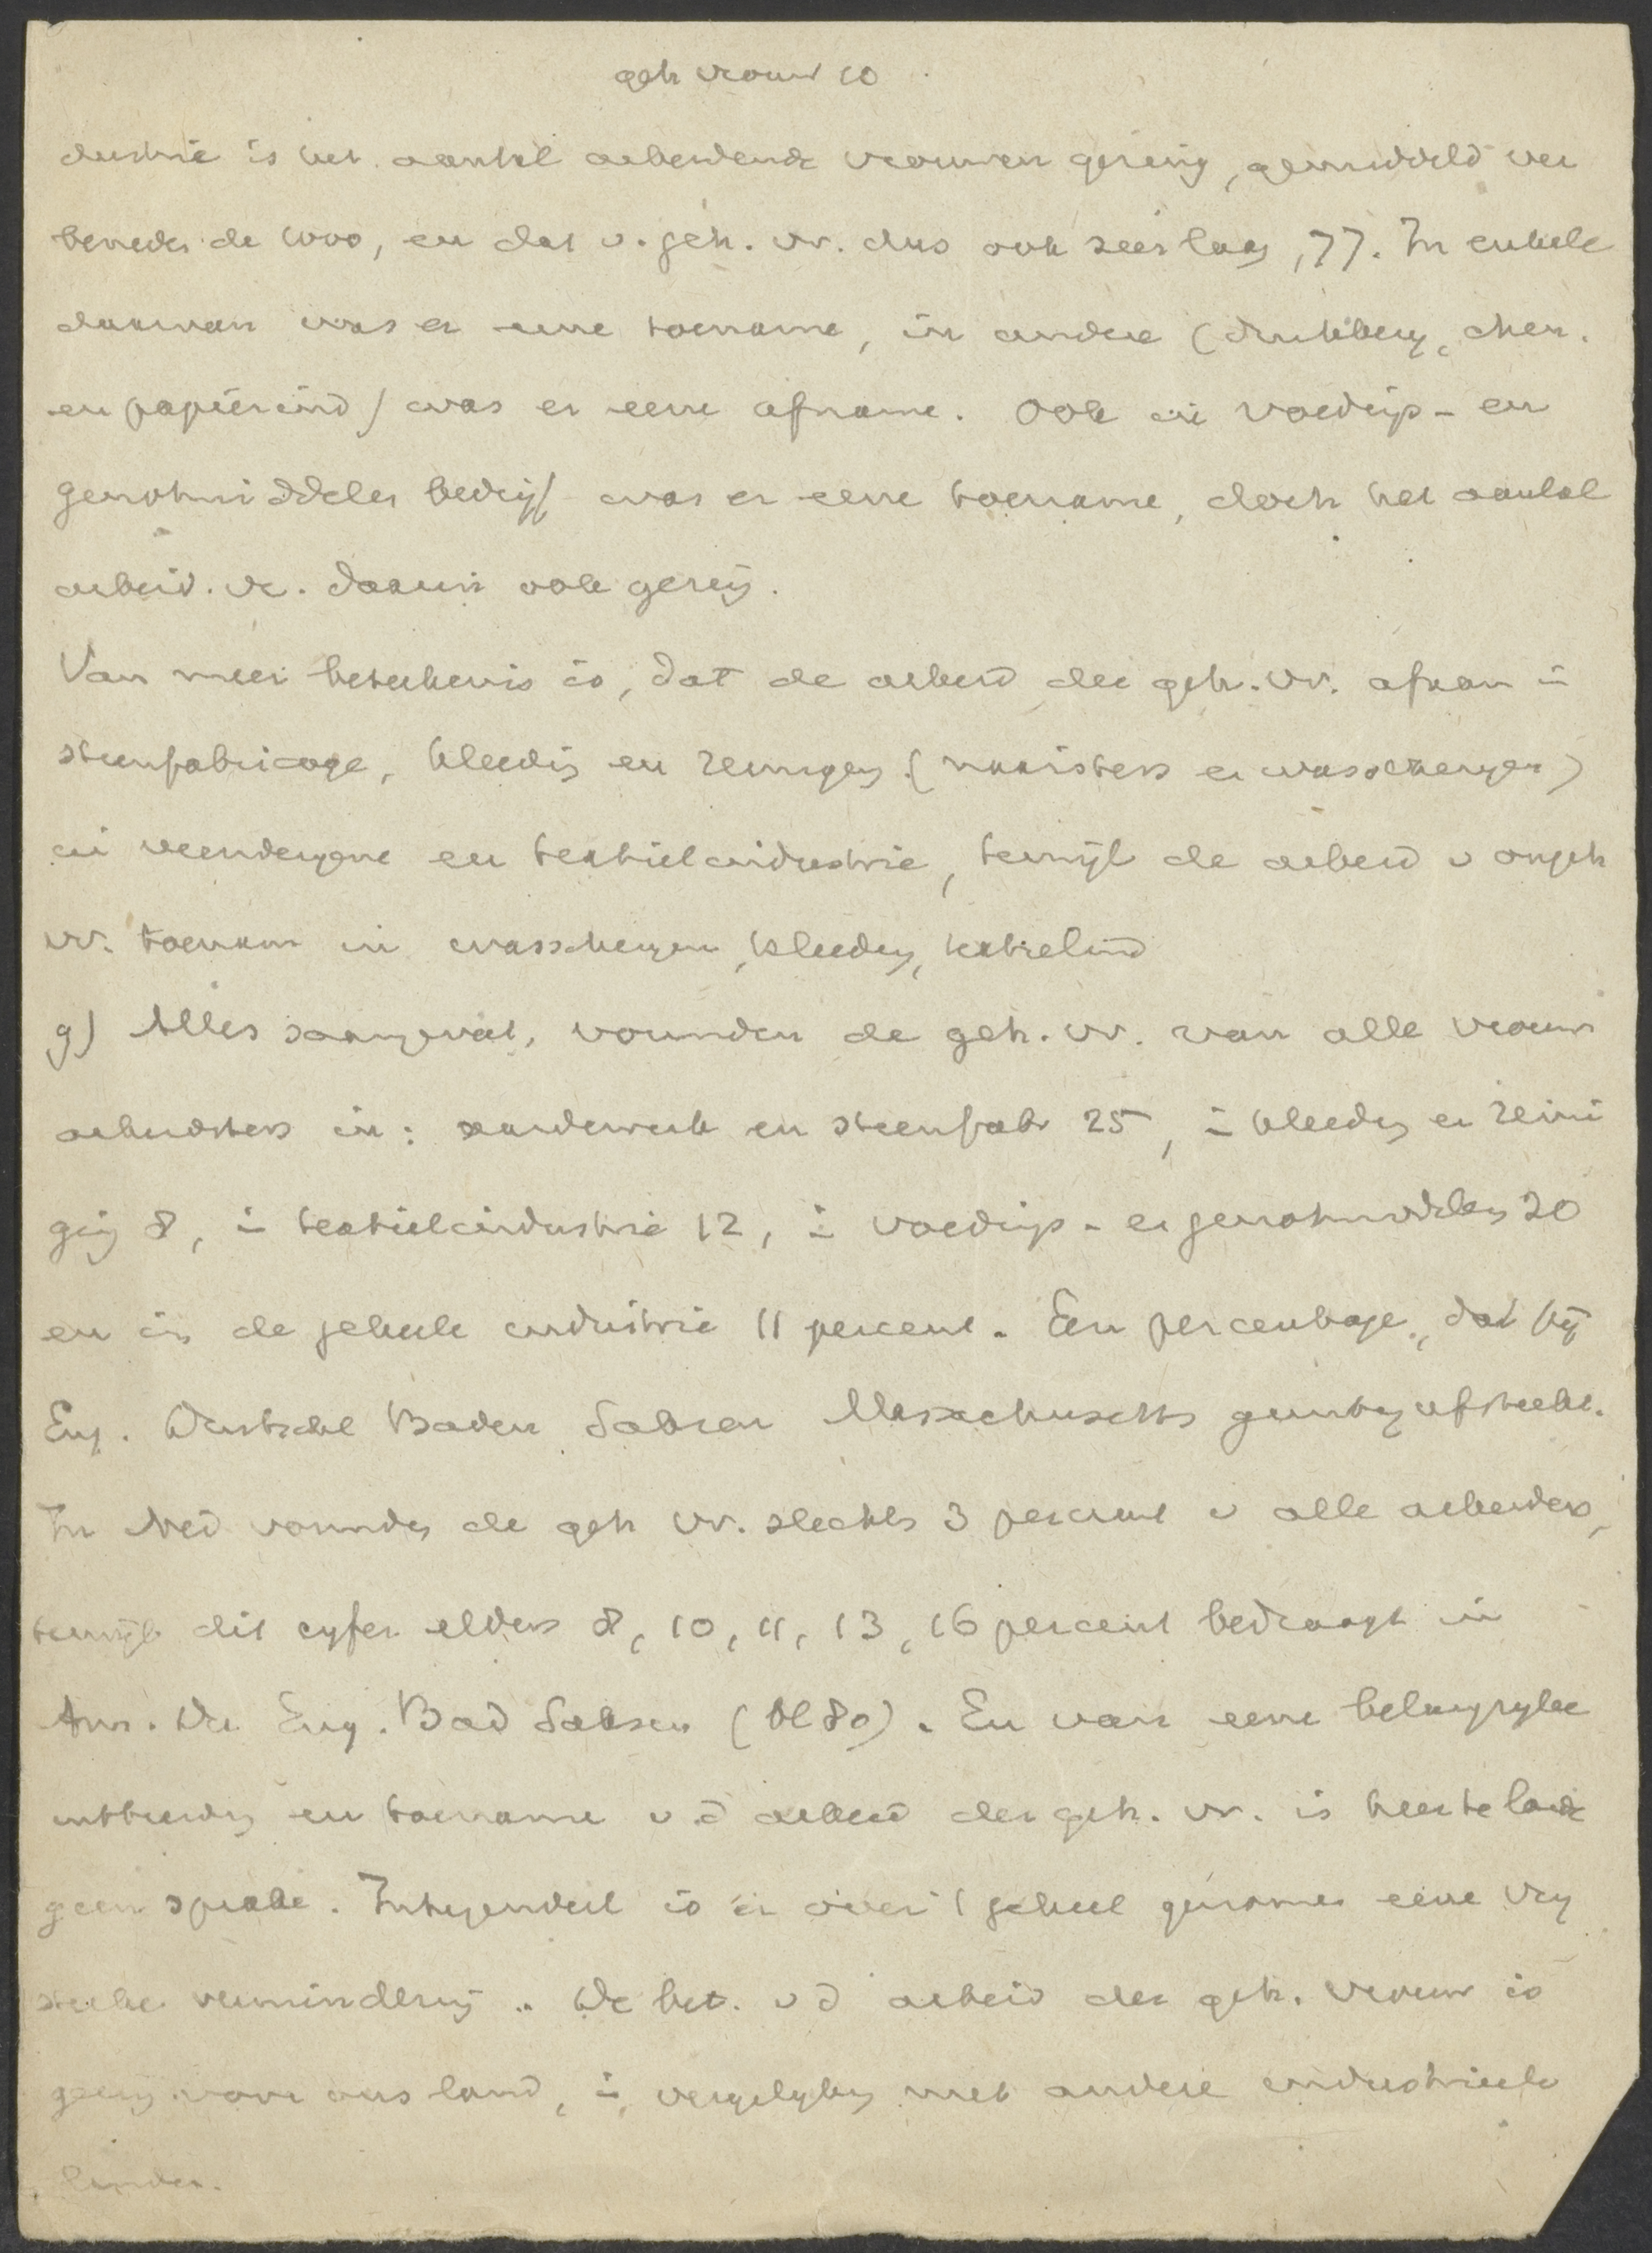 geh vrouw 10
dustrie is het aantal arbeidende vrouwen gering, gemiddeld ver
beneden de 1000, en dat v. geh. vr. dus ook zeer laag, 77. In enkele
daarvan was er eene toename, in andere (drukkery, chem.
en papierind) was er eene afname. Ook in voedings- en
genotmiddelen bedryf was er eene toename, doch het aantal
arbeid. vr. daarin ook gering.
Van meer beteekenis is, dat de arbeid der geh. vr. afnam in
steenfabricage, kleeding en reiniging (naaisters en wasscheryen)
in veenderyen en textielindustrie, terwyl de arbeid v ongeh
vr. toenam in wasscheryen, kleeding, textielind
g) Alles saamgevat, vormden de geh. vr. van alle vrouw
arbeidsters in: aardewerk en steenfabr 25, in kleeding en reini
ging 8, in textielindustrie 12, in voedings- en genotmiddelen 20
en in de geheele industrie 11 percent. Een percentage, dat by
Eng. Duitschl Baden Saksen Massachusetts gunstig afsteekt.
In Ned vormden de geh vr. slechts 3 percent v alle arbeiders,
terwyl dit cyfer elders 8, 10, 11, 13, 16 percent bedraagt in
Am. Du Eng. Bad Saksen (bl 80). En van eene belangryke
uitbreiding en toename v d arbeid der geh. vr. is hier te lande
geen sprake. Integendeel is er over 't geheel genomen eene vry
sterke vermindering. De bet. v d arbeid der geh. vrouw is
gering voor ons land, in vergelyking met andere industrieele
landen.